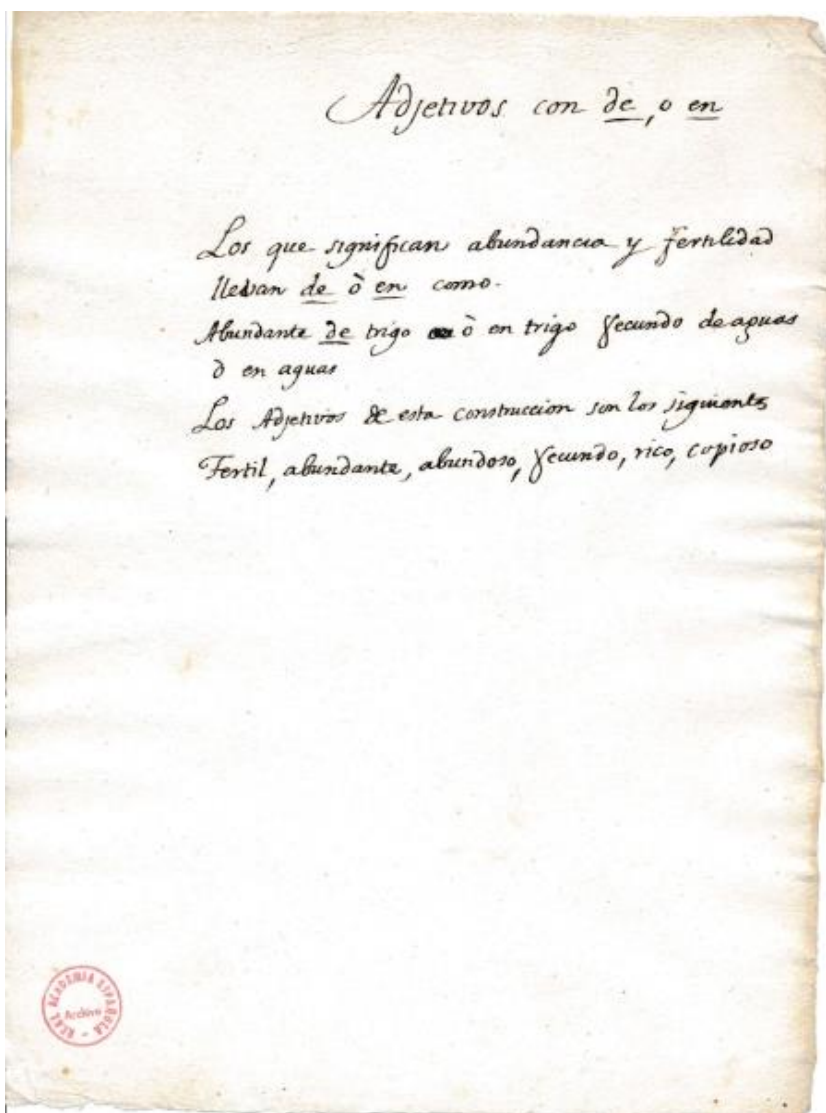 Adjetivos con de, o en
Los que significan abundancia y fertilidad
llevan de ò en como.
Abundante de trigo ò en trigo fecundo de aguas
ò en aguas
Los Adjetivos de esta construccion son los siguientes
Fertil, abundante, abundoso, fecundo, rico, copioso
REAL ACADEMIA ESPAÑOLA
Archivo